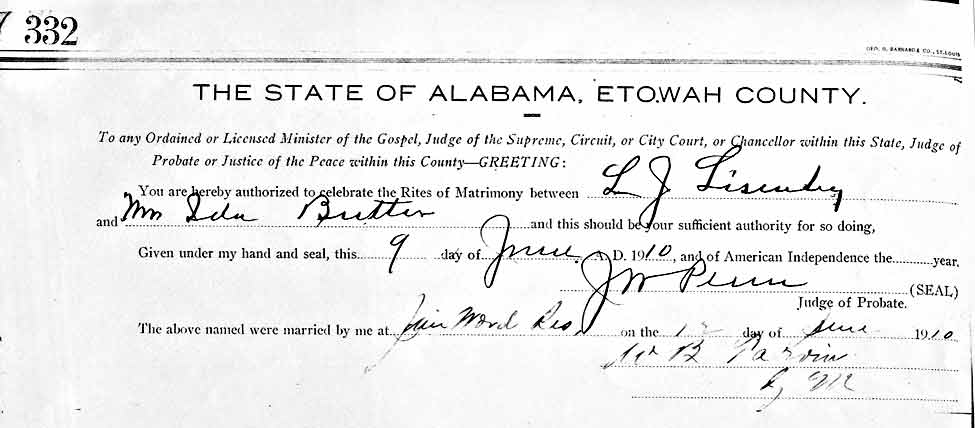 332
GEO. D. BARNARD & CO., ST. LOUIS
THE STATE OF ALABAMA, ETOWAH COUNTY.
To any Ordained or Licensed Minister of the Gospel, Judge of the Supreme, Circuit, or City Court, or Chancellor within this State, Judge of
Probate or Justice of the Peace within this County—GREETING:
You are hereby authorized to celebrate the Rites of Matrimony between L J Lisenby
and Mrs Ida and this should be your sufficient authority for so doing,
Given under my hand and seal, this 9 day of June A. D. 1910, and of American Independence the year.
J W Penn (SEAL)
Judge of Probate.
The above named were married by me at Jim Word Res on the 12 day of June 1910